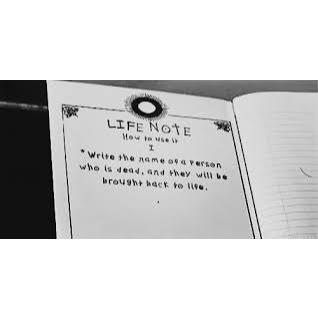 LIFE NOTE
How to use it
I
*Write the name of a person
who is dead, and they will be
brought back to life.